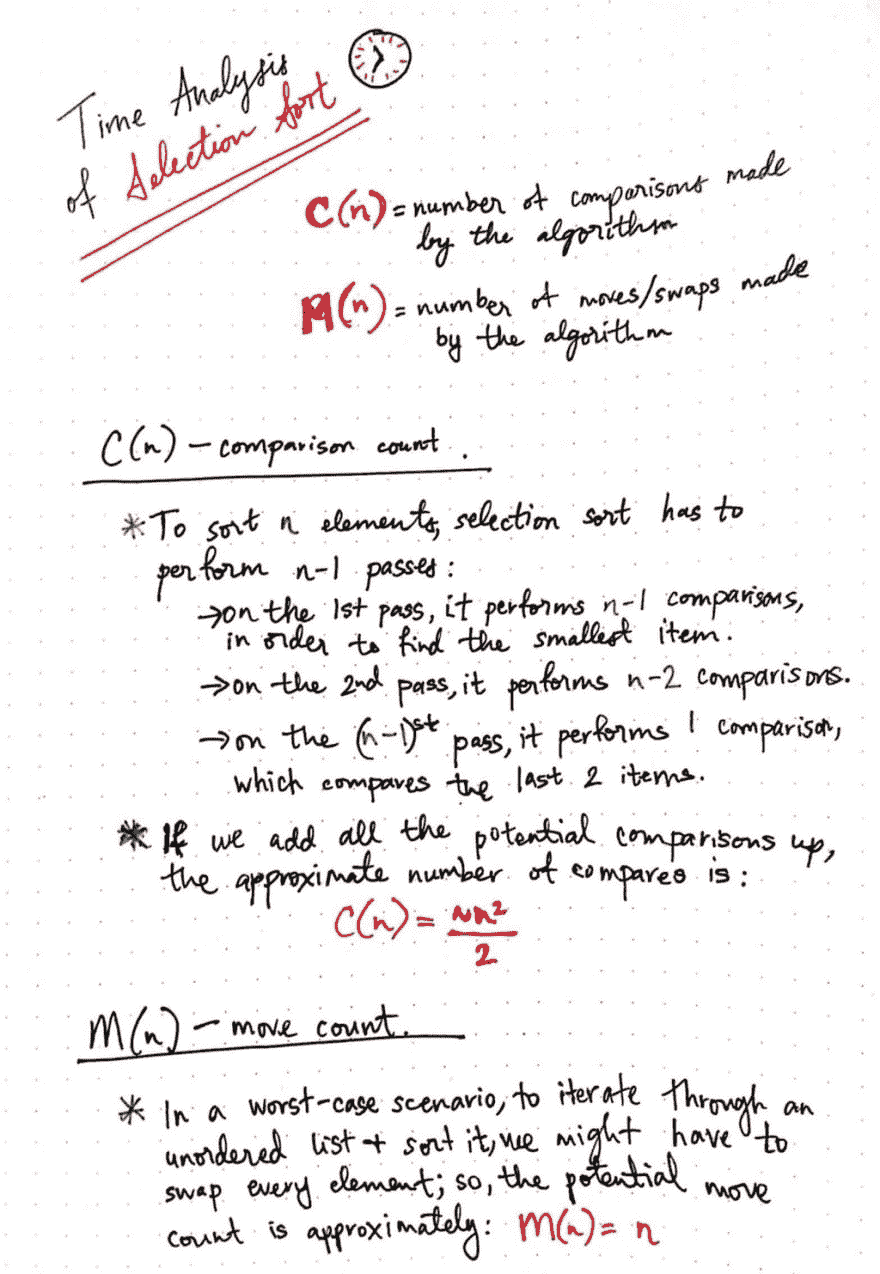 Time Analysis
of Selection Sort
C(n) = number of comparisons made
by the algorithm
M(n) = number of moves/swaps made
by the algorithm
C(n) – comparison count.
* To sort n elements, selection sort has to
perform n-1 passes:
→ on the 1st pass, it performs n-1 comparisons,
in order to find the smallest item.
→ on the 2nd pass, it performs n-2 comparisons.
→ on the (n-1)st pass, it performs 1 comparison,
which compares the last 2 items.
* If we add all the potential comparisons up,
the approximate number of compares is:
C(n) = ~n²
2
M(n) – move count.
* In a worst-case scenario, to iterate through an
unordered list + sort it, we might have to
swap every element; so, the potential move
count is approximately: M(n) = n